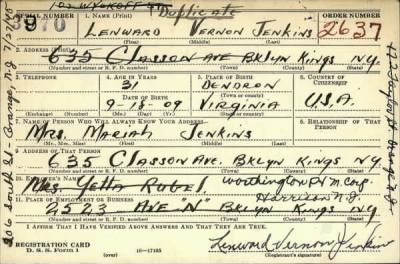 102 WYKOFF ST
Duplicate
SERIAL NUMBER
1. NAME (Print)
ORDER NUMBER
3970
LENWARD VERNON JENKINS
2637
(First) (Middle) (Last)
2. ADDRESS (Print)
635 CLASSON AVE BKLYN KINGS N.Y.
(Number and street or R. F. D. number) (Town) (County) (State)
3. TELEPHONE
4. AGE IN YEARS
5. PLACE OF BIRTH
6. COUNTRY OF CITIZENSHIP
31
DENDRON
DATE OF BIRTH
(Town or county)
9-18-09
VIRGINIA
U.S.A.
(Exchange) (Number)
(Mo.) (Day) (Yr.)
(State or country)
7. NAME OF PERSON WHO WILL ALWAYS KNOW YOUR ADDRESS
8. RELATIONSHIP OF THAT PERSON
MRS. MARIAH JENKINS
(Mr., Mrs., Miss) (First) (Middle) (Last)
9. ADDRESS OF THAT PERSON
635 CLASSON AVE. BKLYN KINGS N.Y.
(Number and street or R. F. D. number) (Town) (County) (State)
10. EMPLOYER'S NAME
MRS. Yetta RUBEL
Worthington
Harrison N.J.
11. PLACE OF EMPLOYMENT OR BUSINESS
2523 AVE "N" BKLYN KINGS N.Y.
(Number and street or R. F. D. number) (Town) (County) (State)
I AFFIRM THAT I HAVE VERIFIED ABOVE ANSWERS AND THAT THEY ARE TRUE.
REGISTRATION CARD
D. S. S. Form 1
(over)
16-17105
Lenward Vernon Jenkins
(Registrant's signature)
206 South St- Orange, N.J.